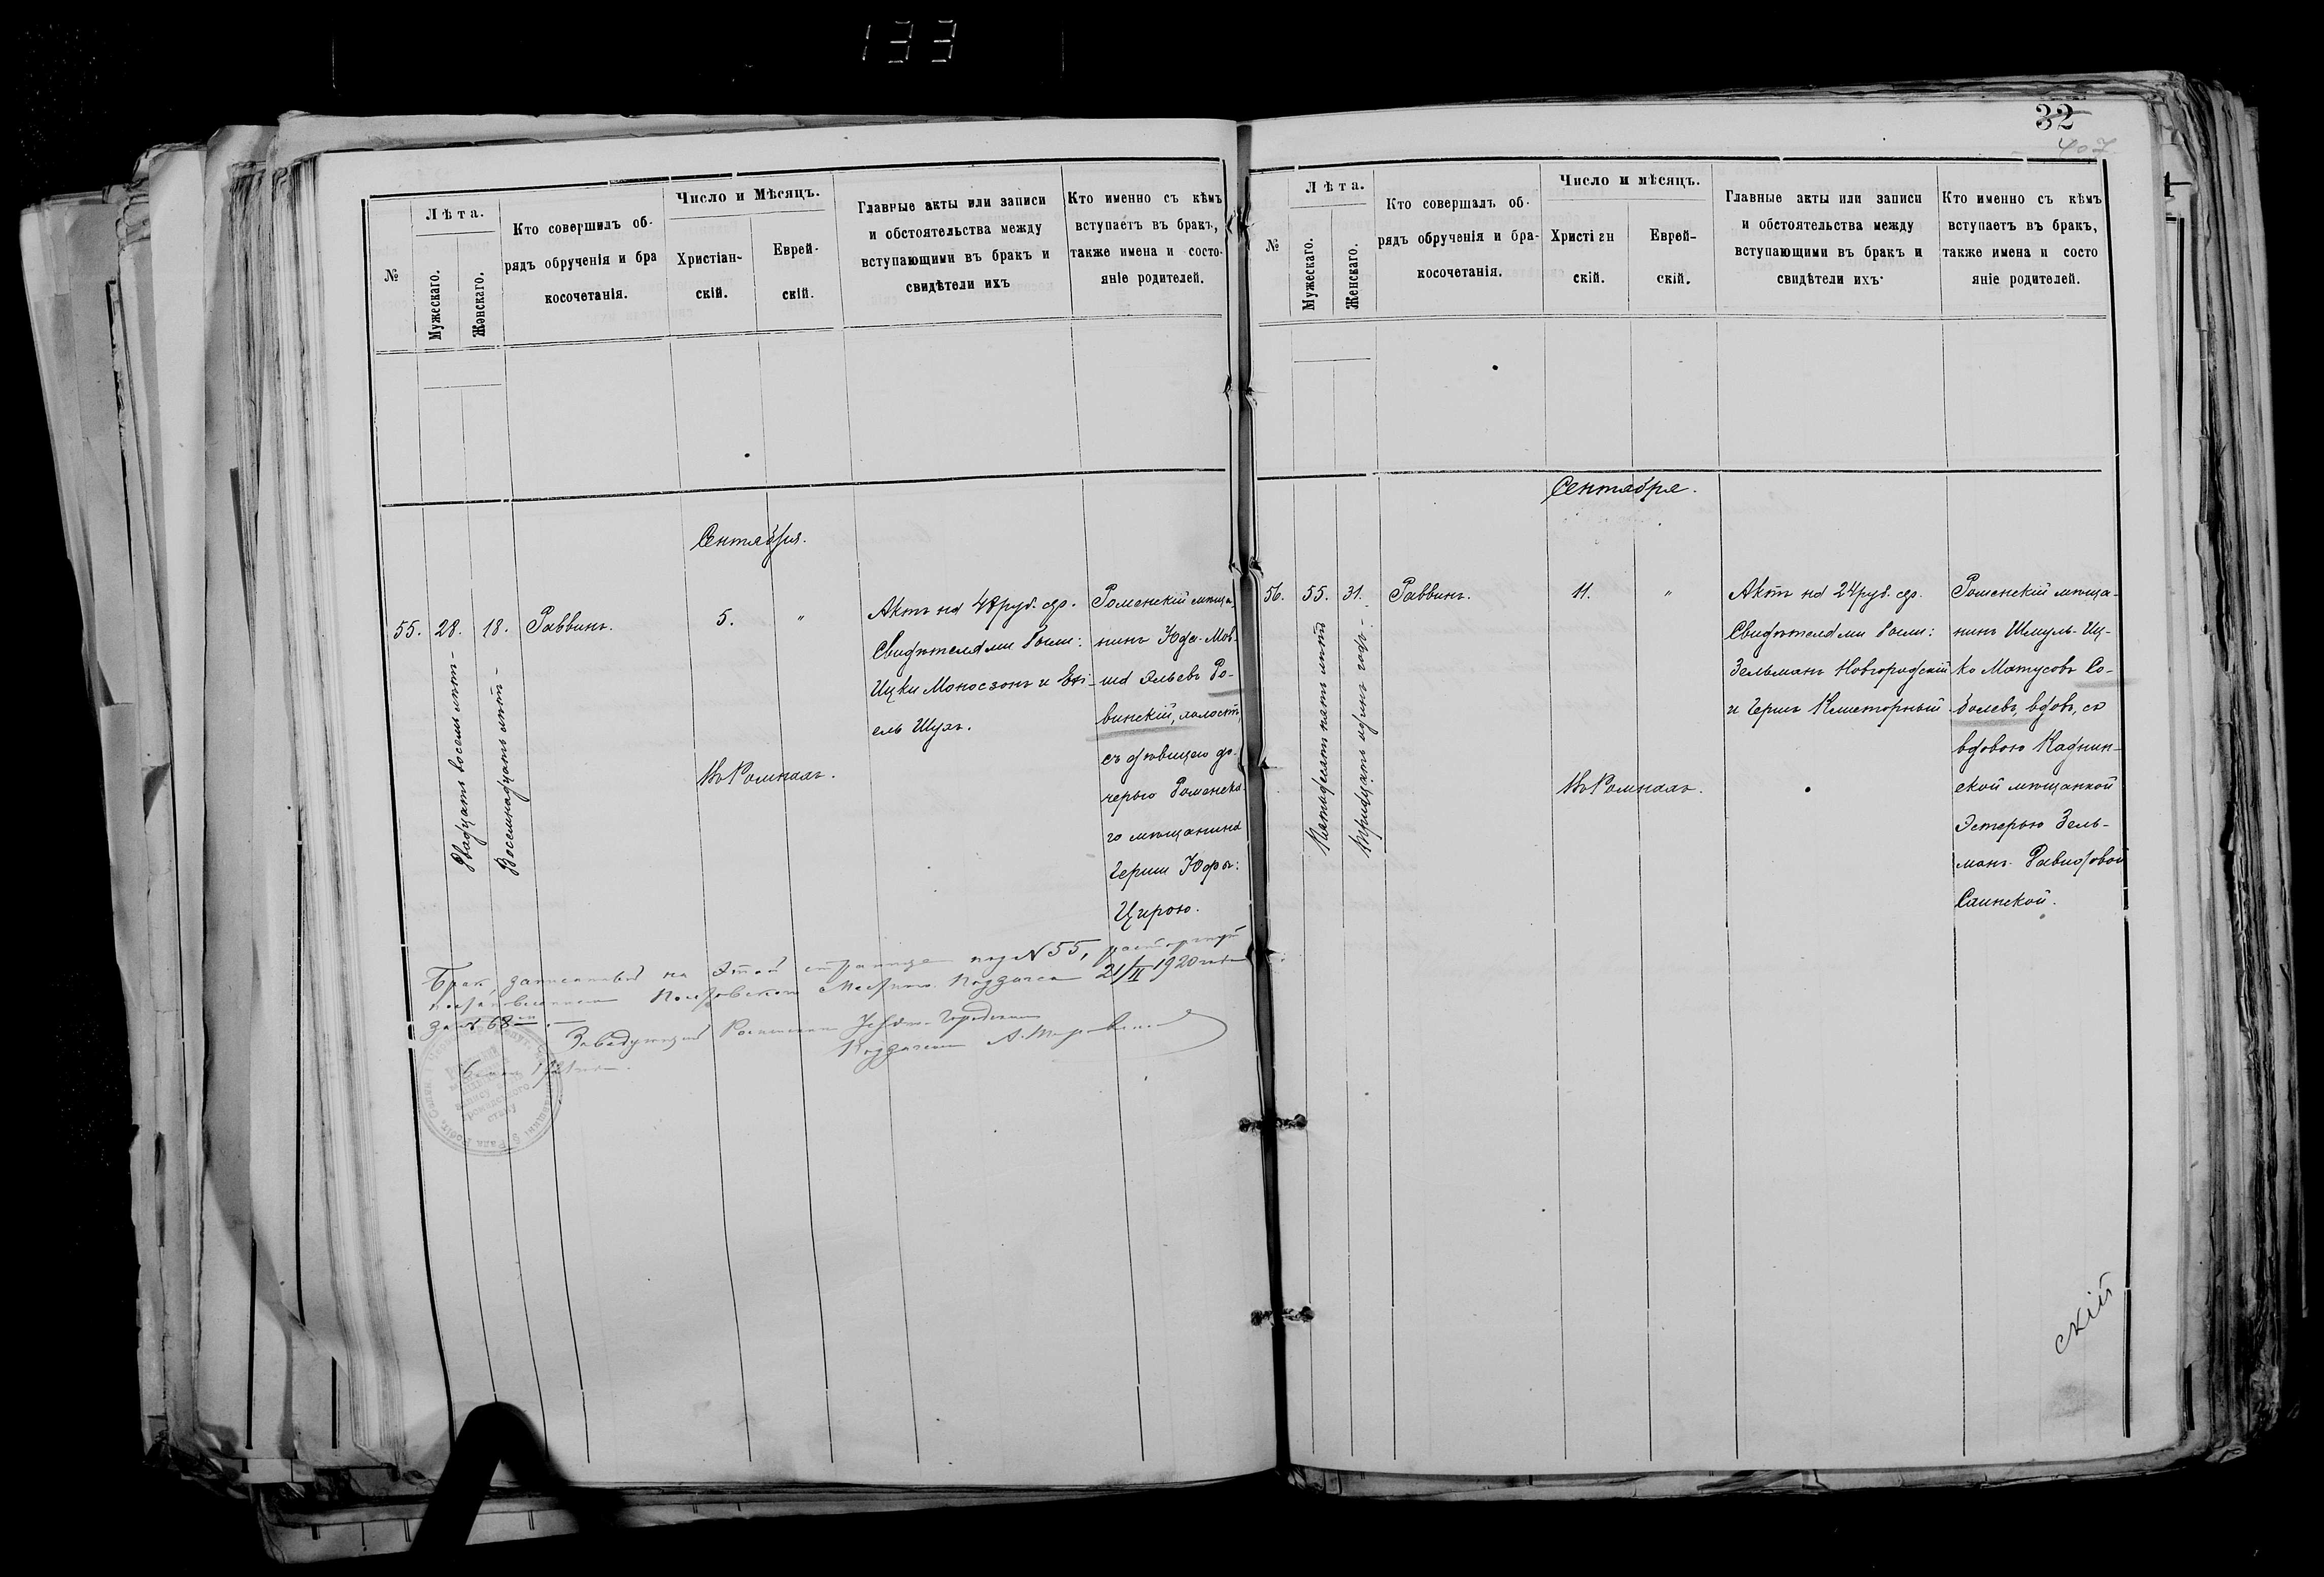 133
№
Лѣта.
Мужескаго.
Женскаго.
Кто совершилъ об-
рядъ обрученія и бра
косочетанія.
Число и Мѣсяцъ.
Христіан-
скій.
Еврей-
скій.
Главные акты или записи
и обстоятельства между
вступающими въ бракъ и
свидѣтели ихъ
Кто именно съ кѣмъ
вступаетъ въ бракъ,
также имена и состо-
яніе родителей.
Сентября.
55. 28. 18. Раввинъ. 5. "
Двадцать восемь лѣтъ
Восемнадцать лѣтъ
Въ Ромнахъ.
Актъ на 48 руб. сер.
Свидѣтелями были:
Ицки Моносзонъ и Ехі-
ель Шухъ.
Роменскій мѣща-
нинъ Юда-Мов-
ша Эльевъ Ро-
винскій, холостъ,
съ дѣвицею до-
черью Роменска-
го мѣщанина
Герши Юфы:
Цирою.
Брак, записанный на этой странице под N 55, расторгнут
постановлением Подзагса 21/II 1920 года
за № 68
Заведующий Роменским Городским
Подзагсом
32
407
№
Лѣта.
Мужескаго.
Женскаго.
Кто совершалъ об-
рядъ обрученія и бра-
косочетанія.
Число и мѣсяцъ.
Христіан
скій.
Еврей-
скій.
Главные акты или записи
и обстоятельства между
вступающими въ бракъ и
свидѣтели ихъ
Кто именно съ кѣмъ
вступаетъ въ бракъ,
также имена и состо
яніе родителей.
Сентября.
56. 55. 31. Раввинъ. 11. "
Пятьдесятъ пять лѣтъ
Тридцать одинъ годъ
Въ Ромнахъ.
Актъ на 24 руб. сер.
Свидѣтелями были:
Зельманъ Новгородскій
и Гершъ Клиторный
Роменскій мѣща-
нинъ Шмуль-Иц-
ко Матусовъ Со-
болевъ, вдовъ, съ
вдовою Кадник-
ской мѣщанкой
Эстерью Зель-
манъ-Давидовой
Слинской.
скій